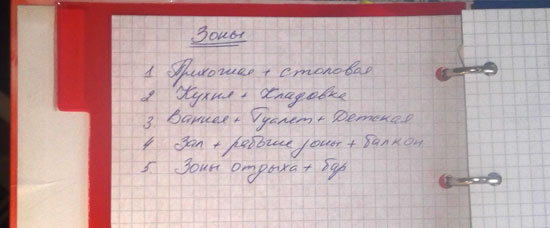 Зоны
1 Прихожая + столовая
2 Кухня + Кладовка
3 Ванная + Туалет + Детская
4 Зал + рабочие зоны + балкон
5 Зоны отдыха + бар